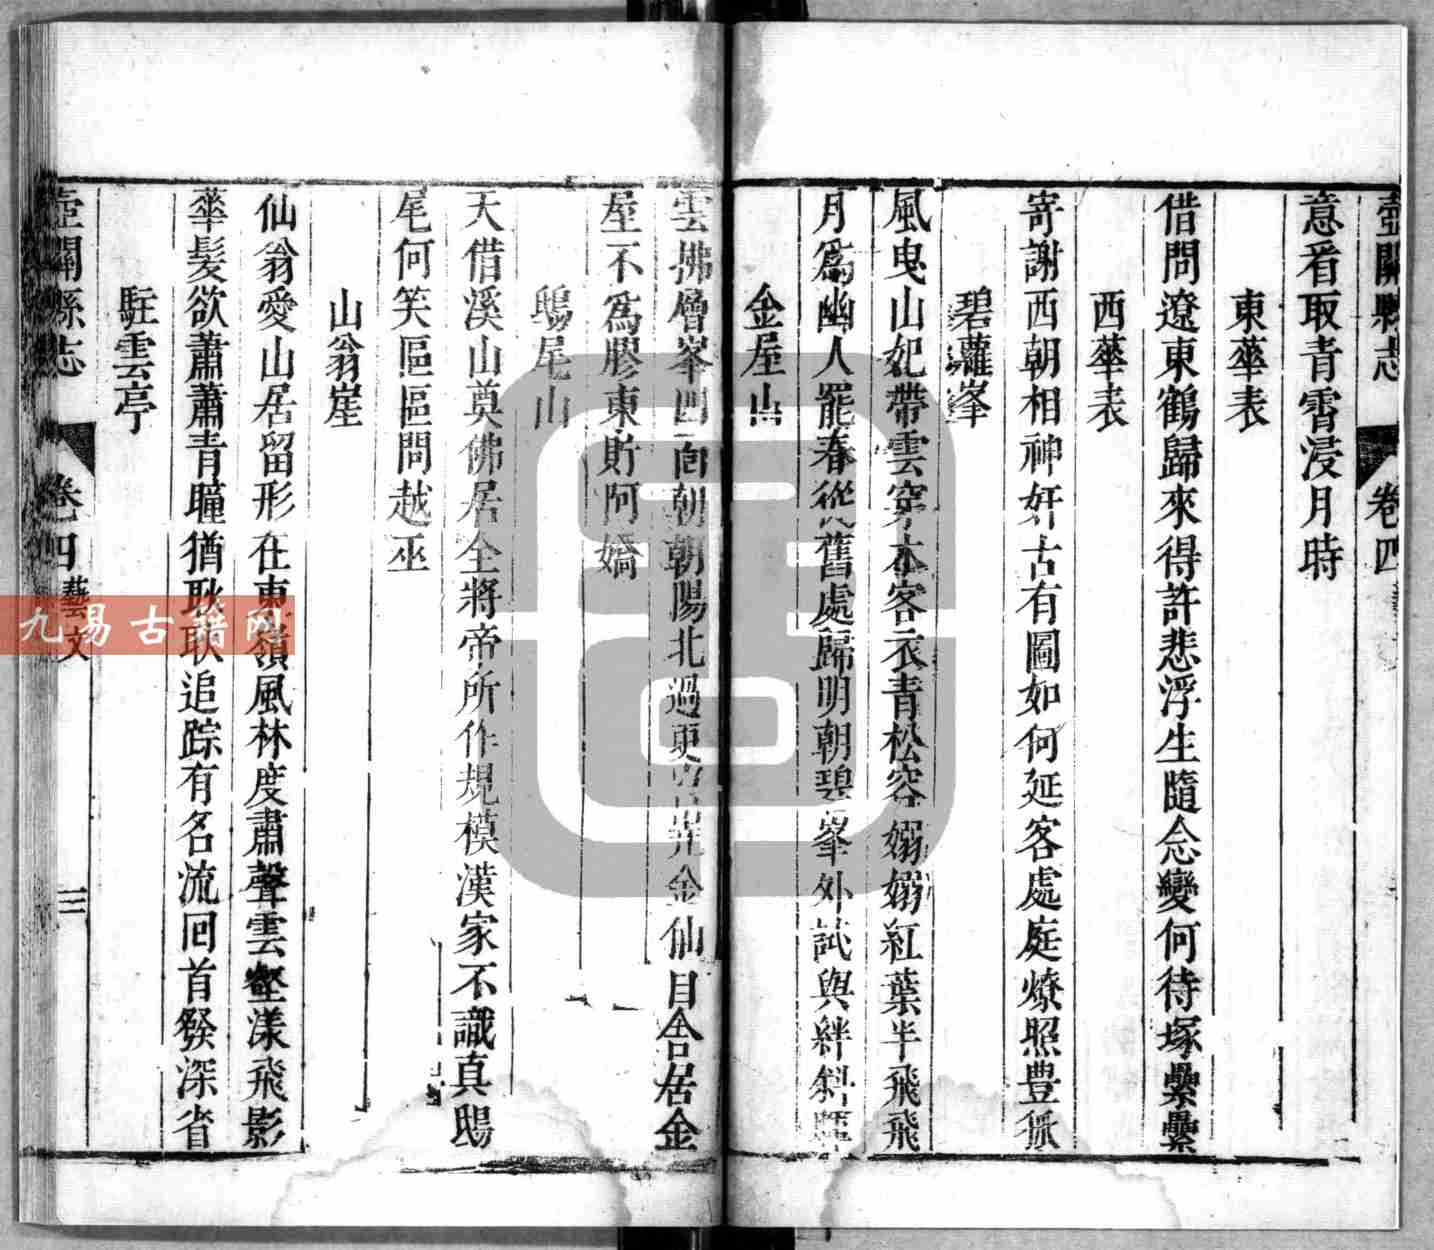 壺關縣志 卷四
意看取青霄浸月時
東華表
借問遼東鶴歸來得許悲浮生隨念變何待塚纍纍
西華表
寄謝西朝相神奸古有圖如何延客處庭燎照豊狐
碧蘿峯
風曳山妃帶雲穿木客衣青松空嫋嫋紅葉半飛飛
月爲幽人罷春從舊處歸明朝碧峯外試與絆斜
金屋山
雲拂層峯四面朝朝陽北過更岧嶤金仙自舍居金
屋不爲膠東貯阿嬌
鴟尾山
天借溪山奠佛居全將帝所作規模漢家不識真鴟
尾何笑區區問越巫
山翁崖
仙翁愛山居留形在東嶺風林度肅聲雲壑漾飛影
華髪欲蕭蕭青瞳猶耿耿追踪有名流回首發深省
駐雲亭
壺關縣志 卷四 藝文 三
九易古籍网